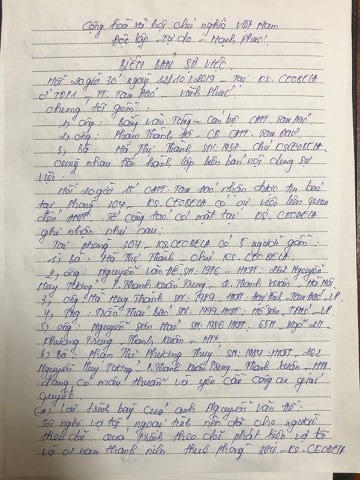 Cộng hoà xã hội chủ nghĩa Việt Nam
Độc lập - Tự do - Hạnh Phúc!
BIÊN BẢN SỰ VIỆC
Hồi 20 giờ 30' ngày 12/10/2019 - Tại KS. CEOBELA
ở TDP1 - TT. Tam Đảo Vĩnh Phúc
chúng tôi gồm
1, ông: Đặng Văn Tông - Cán bộ CATT. Tam Đảo
2, ông: Phạm Thanh Hà - CB CATT. Tam Đảo
3, Bà: Hà Thị Thanh, SN: 1987. Chủ KS CEOBELA
cùng nhau tiến hành lập biên bản nội dung sự
việc:
Hồi 20 giờ 15' CATT. Tam Đảo nhận được tin báo
tại Phòng 204 - KS. CEOBELA có sự việc liên quan
đến ANTT. Tổ công tác có mặt tại KS. CEOBELA
ghi nhận như sau:
Tại phòng 204 - KS. CEOBELA có 5 người gồm:
1, Bà Hà Thị Thanh - chủ KS. CEOBELA
2, ông: Nguyễn Văn Đề, SN: 1976 - HKTT: 262 Nguyễn
Huy Tưởng, P. Thanh Xuân Trung - Q. Thanh Xuân - Hà Nội
3, ông Hà Huy Thanh SN: 1989 HKTT: Tam Đảo - VP
4, ông: Trần Thái Bảo SN: 1999. HKTT: Hồ Sơn, TĐảo - VP
5, ông: Nguyễn Sơn Hải SN 1986 HKTT, Ngõ 211
Khương Trung - Thanh Xuân - HN
6, Bà: Phạm Thị Phương Thuý SN: 1984: HKTT - 262
Nguyễn Huy Tưởng, P. Thanh Xuân Trung - Thanh Xuân - HN
đang có mâu thuẫn và yêu cầu công an giải
quyết.
Lời trình bày của anh Nguyễn Văn Đề:
Tôi nghi vợ tôi ngoại tình nên đã cho người
theo dõi quá trình theo dõi phát hiện vợ tôi
và 01 nam thanh niên thuê phòng 204 - KS. CEOBELA